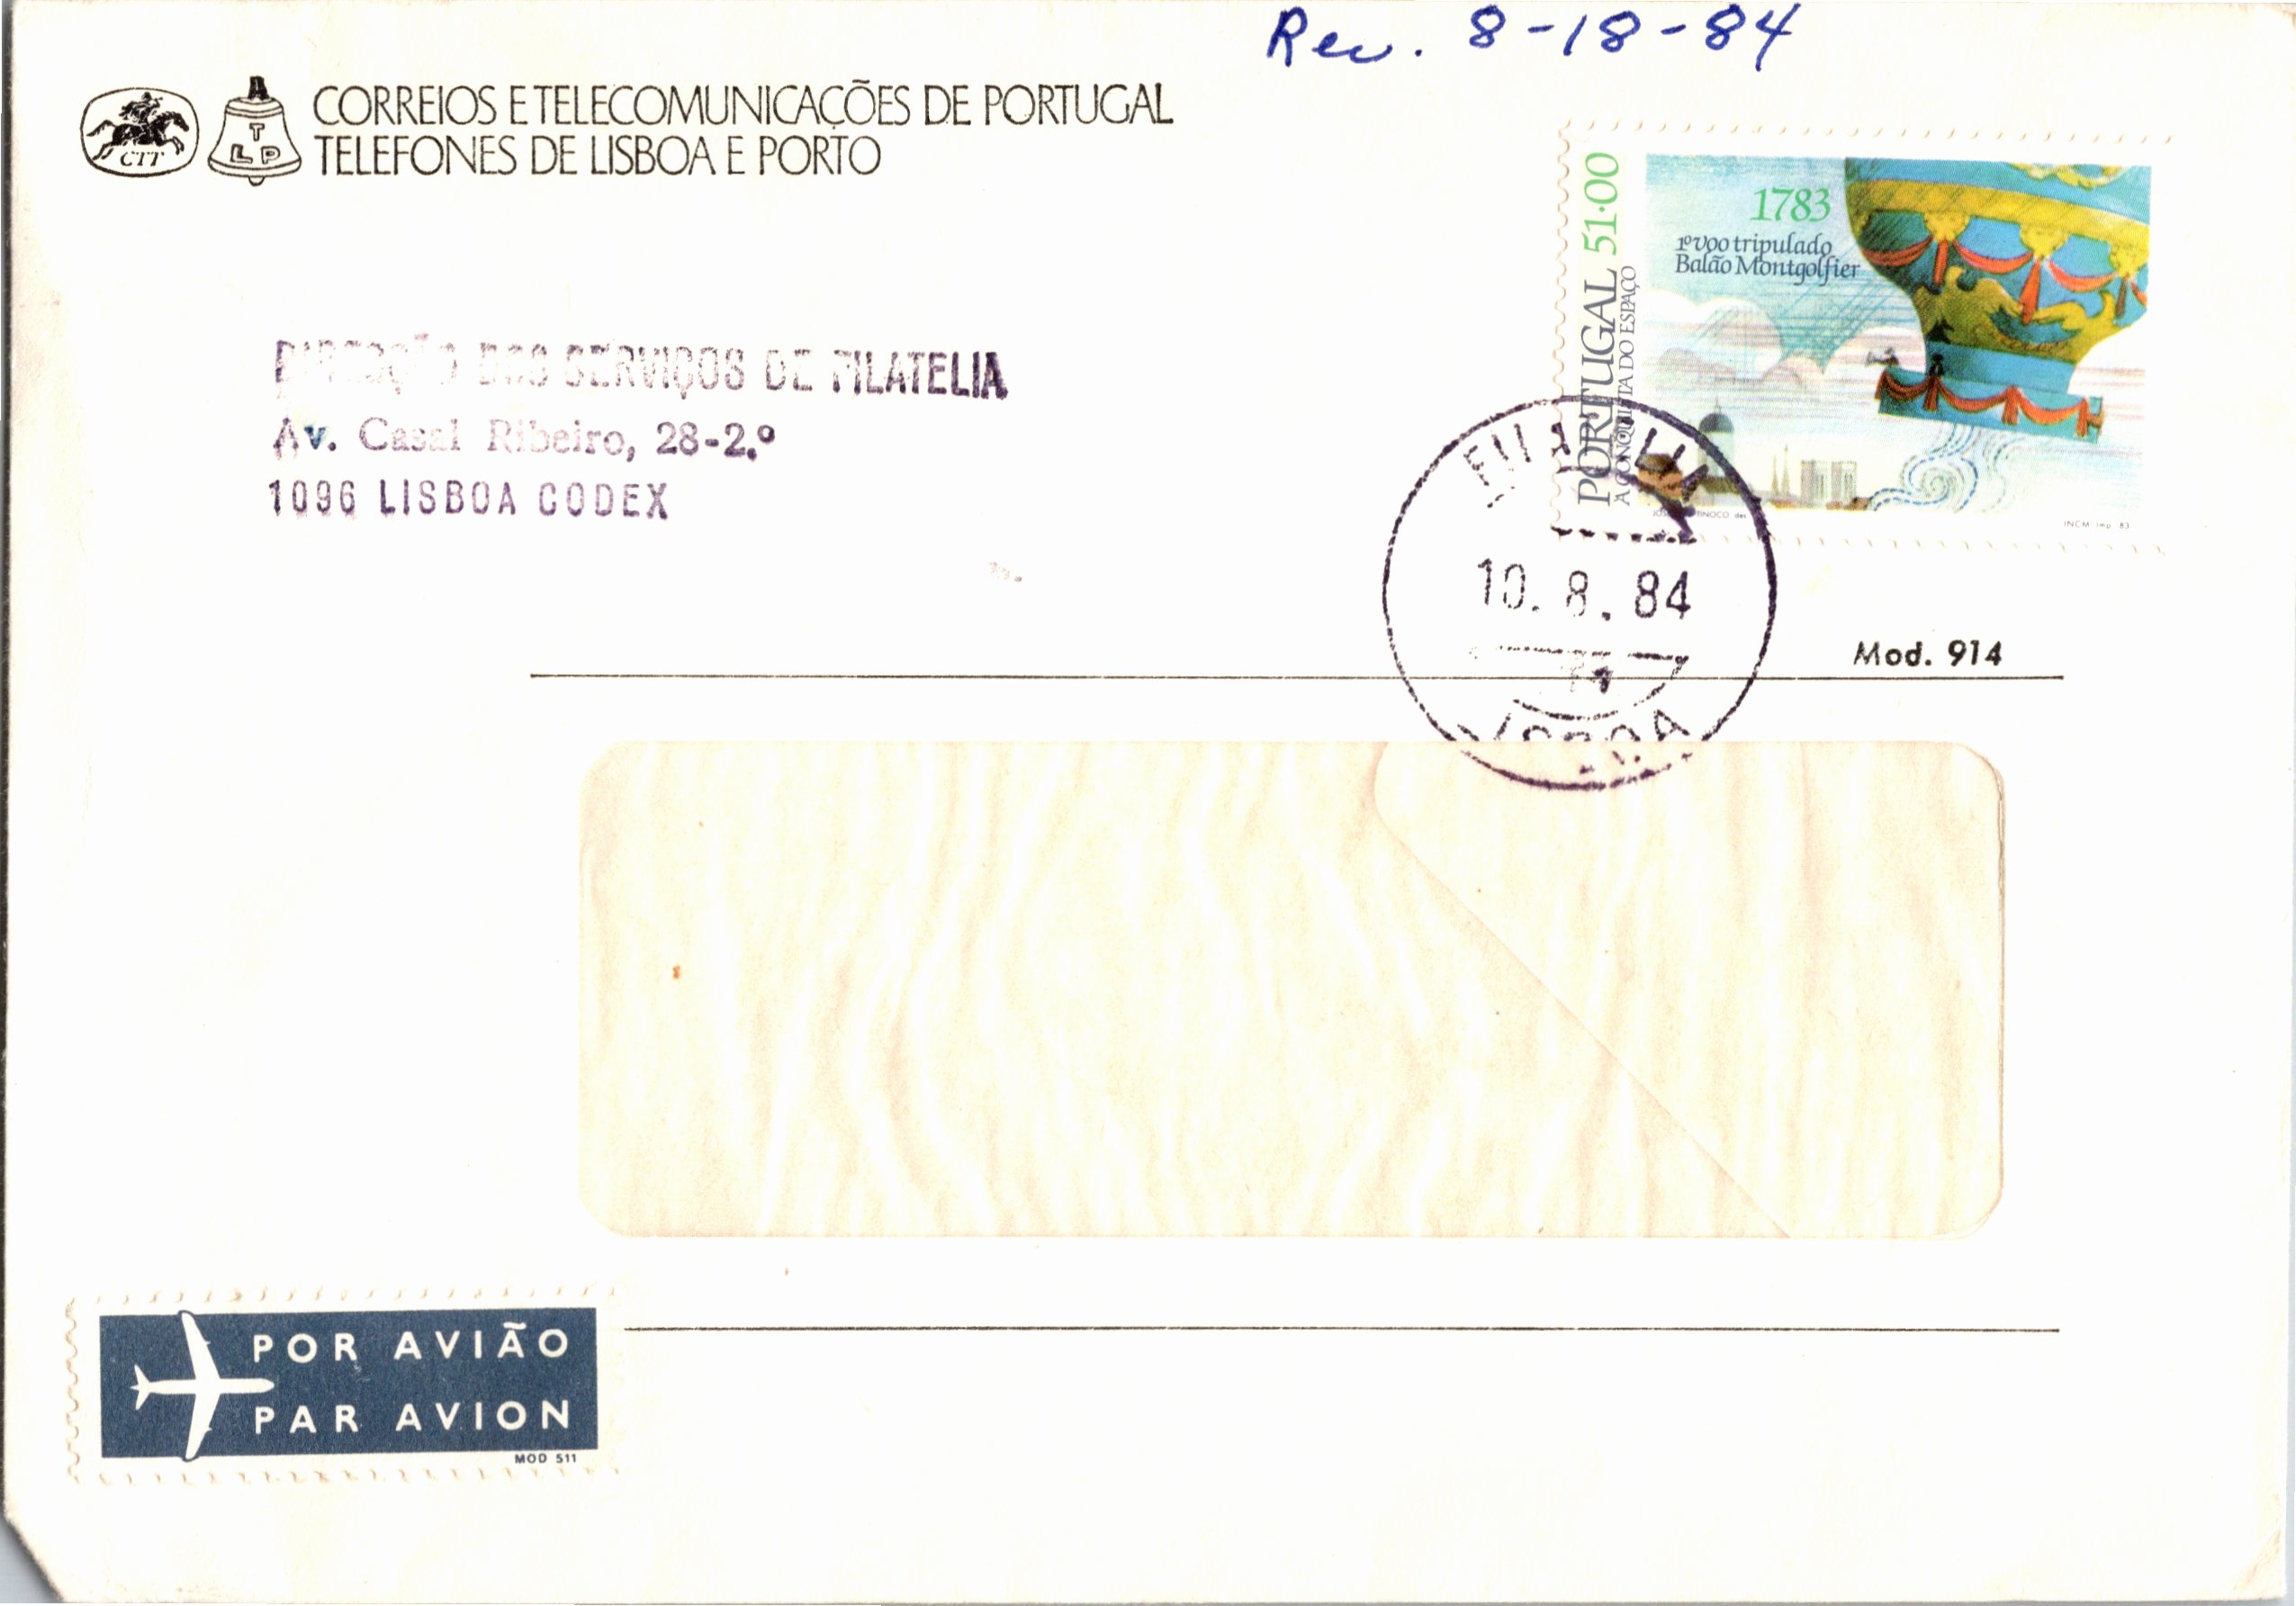 Rev. 8-18-84
CTT
TLP
CORREIOS E TELECOMUNICAÇÕES DE PORTUGAL
TELEFONES DE LISBOA E PORTO
PORTUGAL 51·00
A CONQUISTA DO ESPAÇO
1783
1º voo tripulado
Balão Montgolfier
INCM Imp 83
DIRECÇÃO DOS SERVIÇOS DE FILATELIA
Av. Casal Ribeiro, 28-2.º
1096 LISBOA CODEX
FILATELIA
10. 8. 84
LISBOA
Mod. 914
POR AVIÃO
PAR AVION
MOD 511